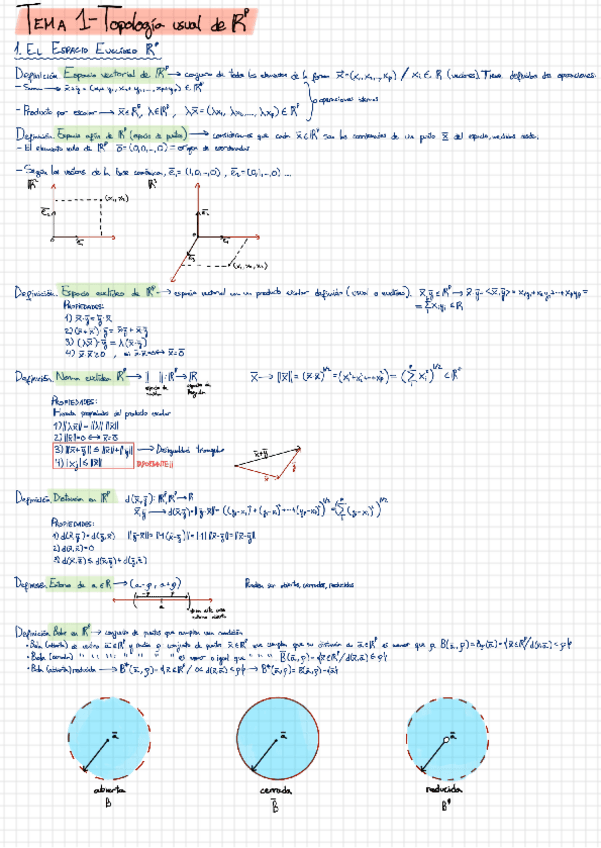 TEMA 1-Topología usual de ℝᵖ
1. EL ESPACIO EUCLÍDEO ℝᵖ
Definición Espacio vectorial de ℝᵖ → conjunto de todos los elementos de la forma x̄=(x₁,x₂,...,xₚ) / xᵢ ∈ ℝ (vectores). Tiene definidas dos operaciones:
- Suma → x̄+ȳ = (x₁+y₁, x₂+y₂, ..., xₚ+yₚ) ∈ ℝᵖ
- Producto por escalar → x̄∈ℝᵖ, λ∈ℝ, λx̄ = (λx₁, λx₂, ..., λxₚ) ∈ ℝᵖ
Definición Espacio afín de ℝᵖ (espacio de puntos) → consideramos que cada x̄∈ℝᵖ son las coordenadas de un punto X del espacio
- El elemento nulo de ℝᵖ ō=(0,0,...,0) = origen de coordenadas
- Según los vectores de la base canónica, ē₁=(1,0,...,0), ē₂=(0,1,...,0) ...
ℝ² ℝ³
(x₁,x₂)
(x₁,x₂,x₃)
Definición Espacio euclídeo de ℝᵖ → espacio vectorial con un producto escalar definido (usual o euclídeo). x̄,ȳ∈ℝᵖ → x̄·ȳ=<x̄,ȳ>= x₁y₁+x₂y₂+...+xₚyₚ =
= Σxᵢyᵢ ∈ℝ
PROPIEDADES:
1) x̄·ȳ=ȳ·x̄
3) (λx̄)·ȳ = λ(x̄·ȳ)
4) x̄·x̄≥0, x̄·x̄=0 ↔ x̄=ō
Definición Norma euclídea ℝᵖ → ‖ ‖: ℝᵖ→ℝ x̄ → ‖x̄‖ = (x̄·x̄)^1/2 = (x₁²+x₂²+...+xₚ²)^1/2 = (Σxᵢ²)^1/2 ∈ℝ
PROPIEDADES:
propiedades del producto escalar
1) ‖λx̄‖ = |λ| ‖x̄‖
2) ‖x̄‖=0 ↔ x̄=ō
3) ‖x̄+ȳ‖ ≤ ‖x̄‖+‖ȳ‖ → Desigualdad triangular
4) |xⱼ| ≤ ‖x̄‖ IMPORTANTE!!
x̄+ȳ
x̄
ȳ
Definición Distancia en ℝᵖ d(x̄,ȳ): ℝᵖ,ℝᵖ→ℝ
x̄,ȳ → d(x̄,ȳ)=‖ȳ-x̄‖ = ((y₁-x₁)²+(y₂-x₂)²+...+(yₚ-xₚ)²)^1/2 = (Σ(yᵢ-xᵢ)²)^1/2
PROPIEDADES:
1) d(x̄,ȳ) = d(ȳ,x̄) ‖ȳ-x̄‖ = ‖-1(x̄-ȳ)‖ = |-1| ‖x̄-ȳ‖=‖x̄-ȳ‖
2) d(x̄,x̄)=0
Definición Entorno de a∈ℝ → (a-ρ, a+ρ) Pueden ser abiertos, cerrados, reducidos
a
Definición Bola en ℝᵖ → conjunto de puntos que cumplen una condición
· Bola (abierta) de centro ā∈ℝᵖ y radio ρ conjunto de puntos x̄∈ℝᵖ que cumplen que su distancia a ā∈ℝᵖ es menor que ρ B(ā,ρ)=Bρ(ā)={x̄∈ℝᵖ/d(x̄,ā)<ρ}
· Bola (cerrada) " " " " " " es menor o igual que " " " B̄(ā,ρ)={x̄∈ℝᵖ/d(x̄,ā)≤ρ}
· Bola (abierta) reducida → B*(ā,ρ)={x̄∈ℝᵖ/ 0<d(x̄,ā)<ρ} → B*(ā,ρ)= B(ā,ρ)-{ā}
ā ā ā
abierta cerrada reducida
B B̄ B*